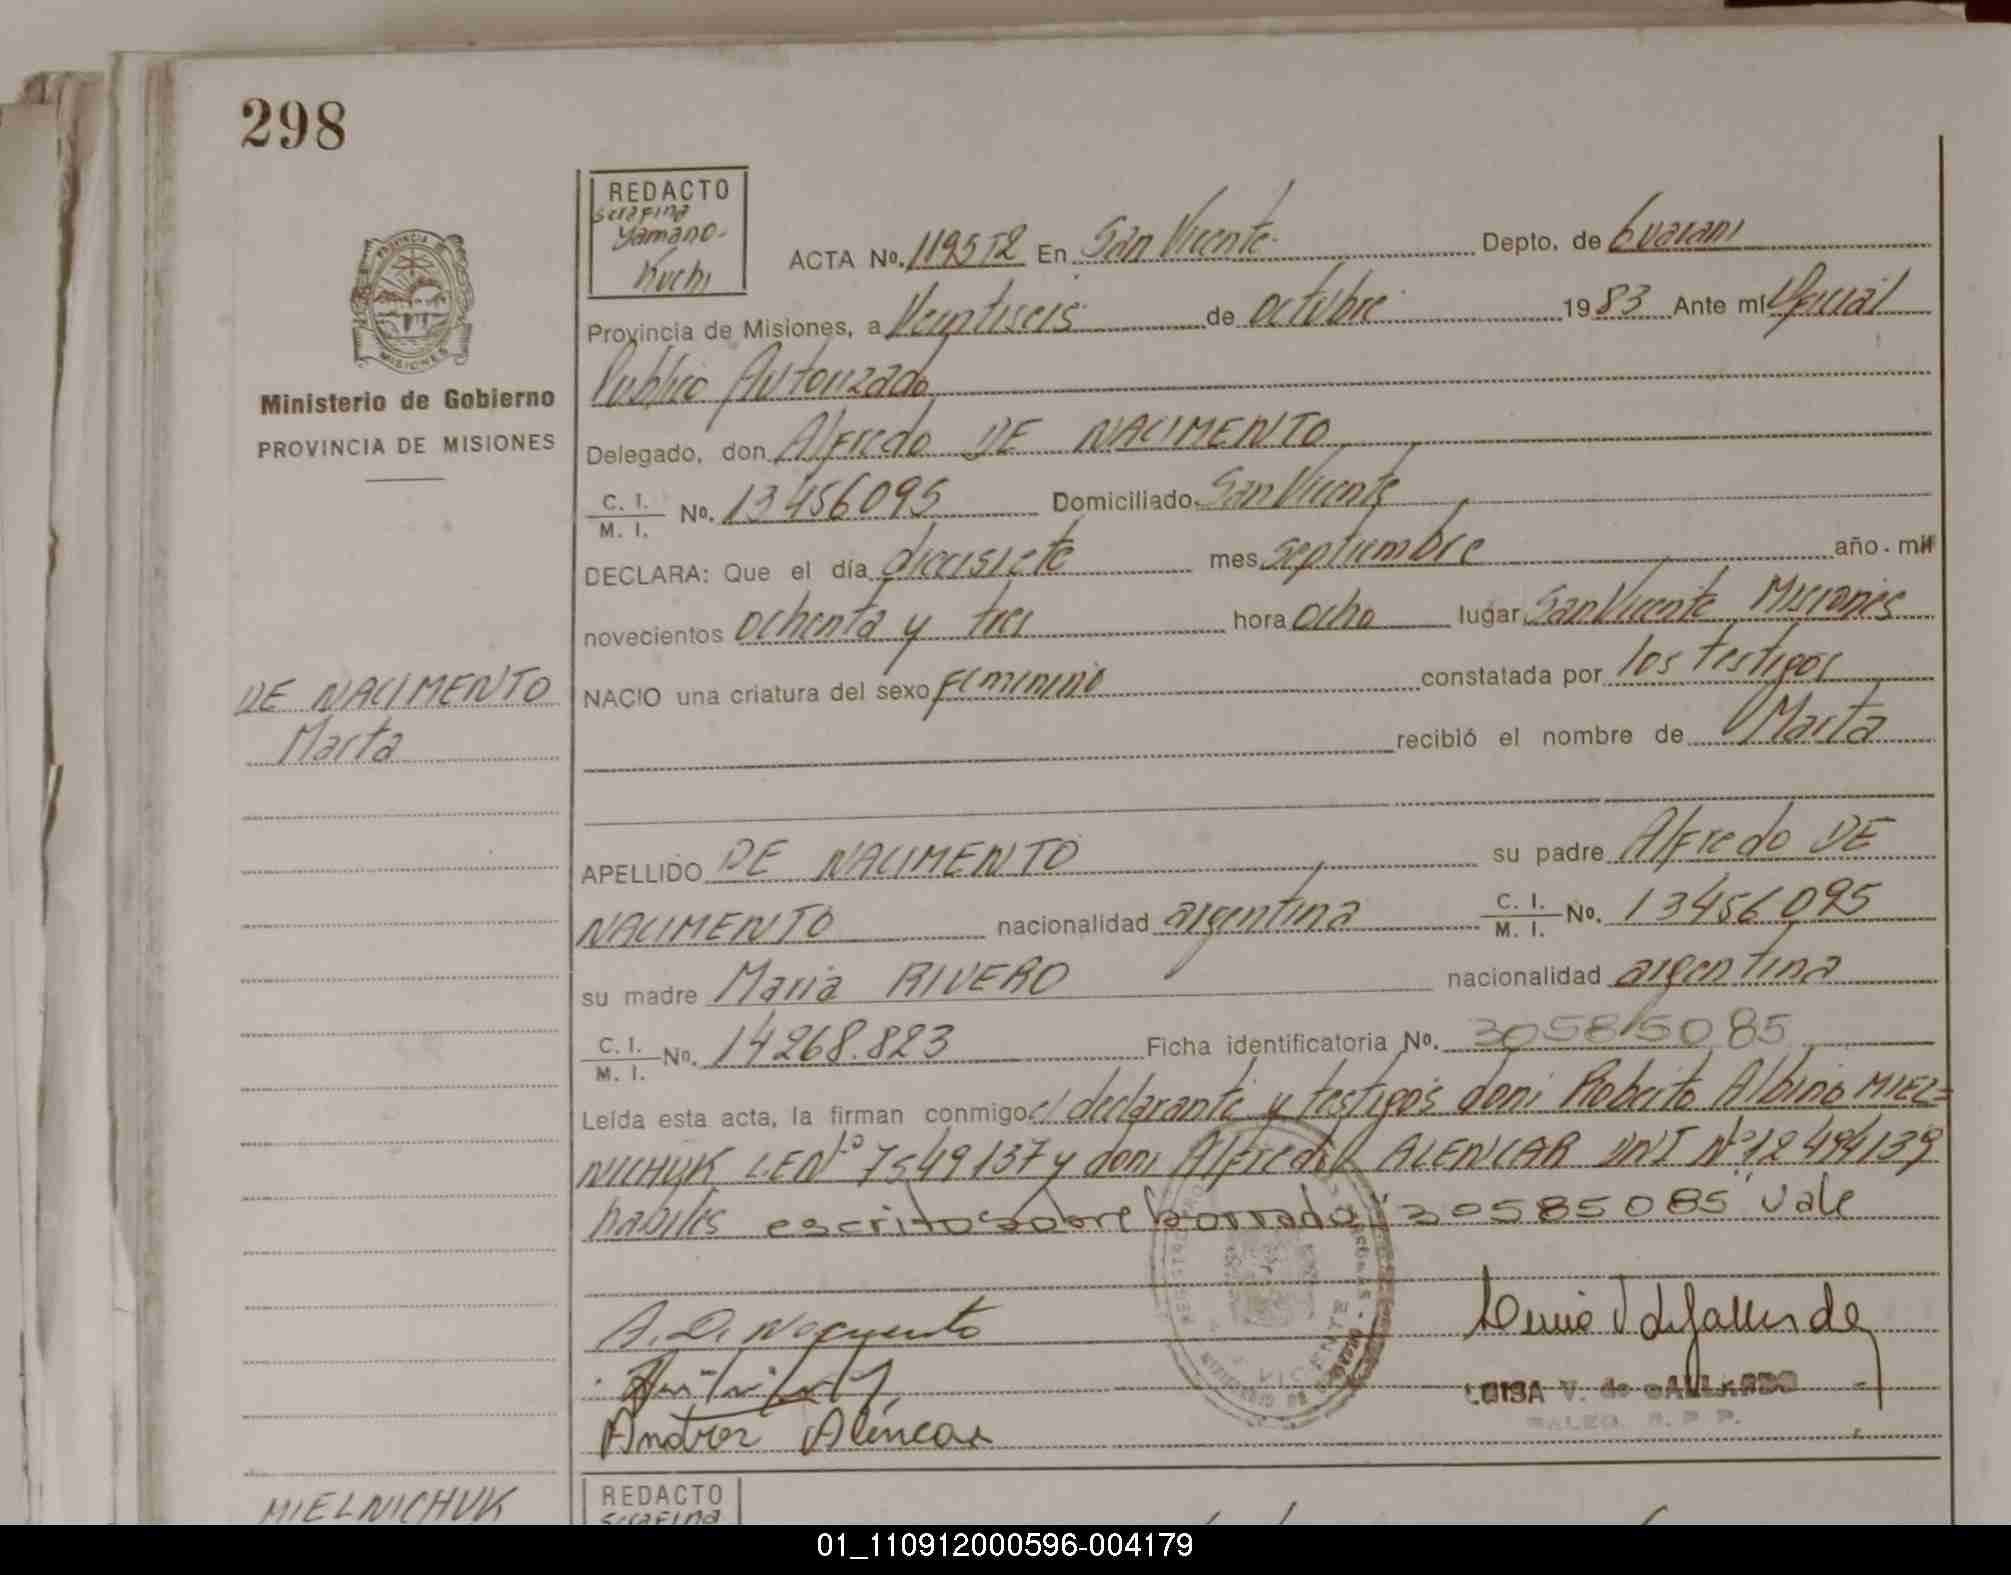 298
REDACTO
Serafina
Yamano-
Kuchi
PROVINCIA DE
MISIONES
Ministerio de Gobierno
PROVINCIA DE MISIONES
ACTA No. 1195T2 En San Vicente Depto. de Guarani
Provincia de Misiones, a Veintiseis de octubre 1983 Ante mí Oficial
Publico Autorizado
Delegado, don Alfredo DE NACIMENTO
C. I. / M. I. No. 13456095 Domiciliado San Vicente
DECLARA: Que el día diecisiete mes septiembre año mil
novecientos ochenta y tres hora ocho lugar San Vicente Misiones
NACIO una criatura del sexo femenino constatada por los testigos
recibió el nombre de Marta
DE NACIMENTO
Marta
APELLIDO DE NACIMENTO su padre Alfredo DE
NACIMENTO nacionalidad argentina C. I. / M. I. No. 13456095
su madre Maria RIVERO nacionalidad argentina
C. I. / M. I. No. 14268.823 Ficha identificatoria No. 30585085
Leída esta acta, la firman conmigo el declarante y testigos don: Roberto Albino MIEL=
NICHUK L.E Nº 7549137 y don: Alfredo ALENCAR DNI Nº 12494139
habiles escrito sobre borrado: "30585085" vale
A. D. Nacimento
Andrez Alencar
LUISA V. de GALLARDO
VICENTE
REDACTO
Serafina
MIELNICHUK
01_110912000596-004179